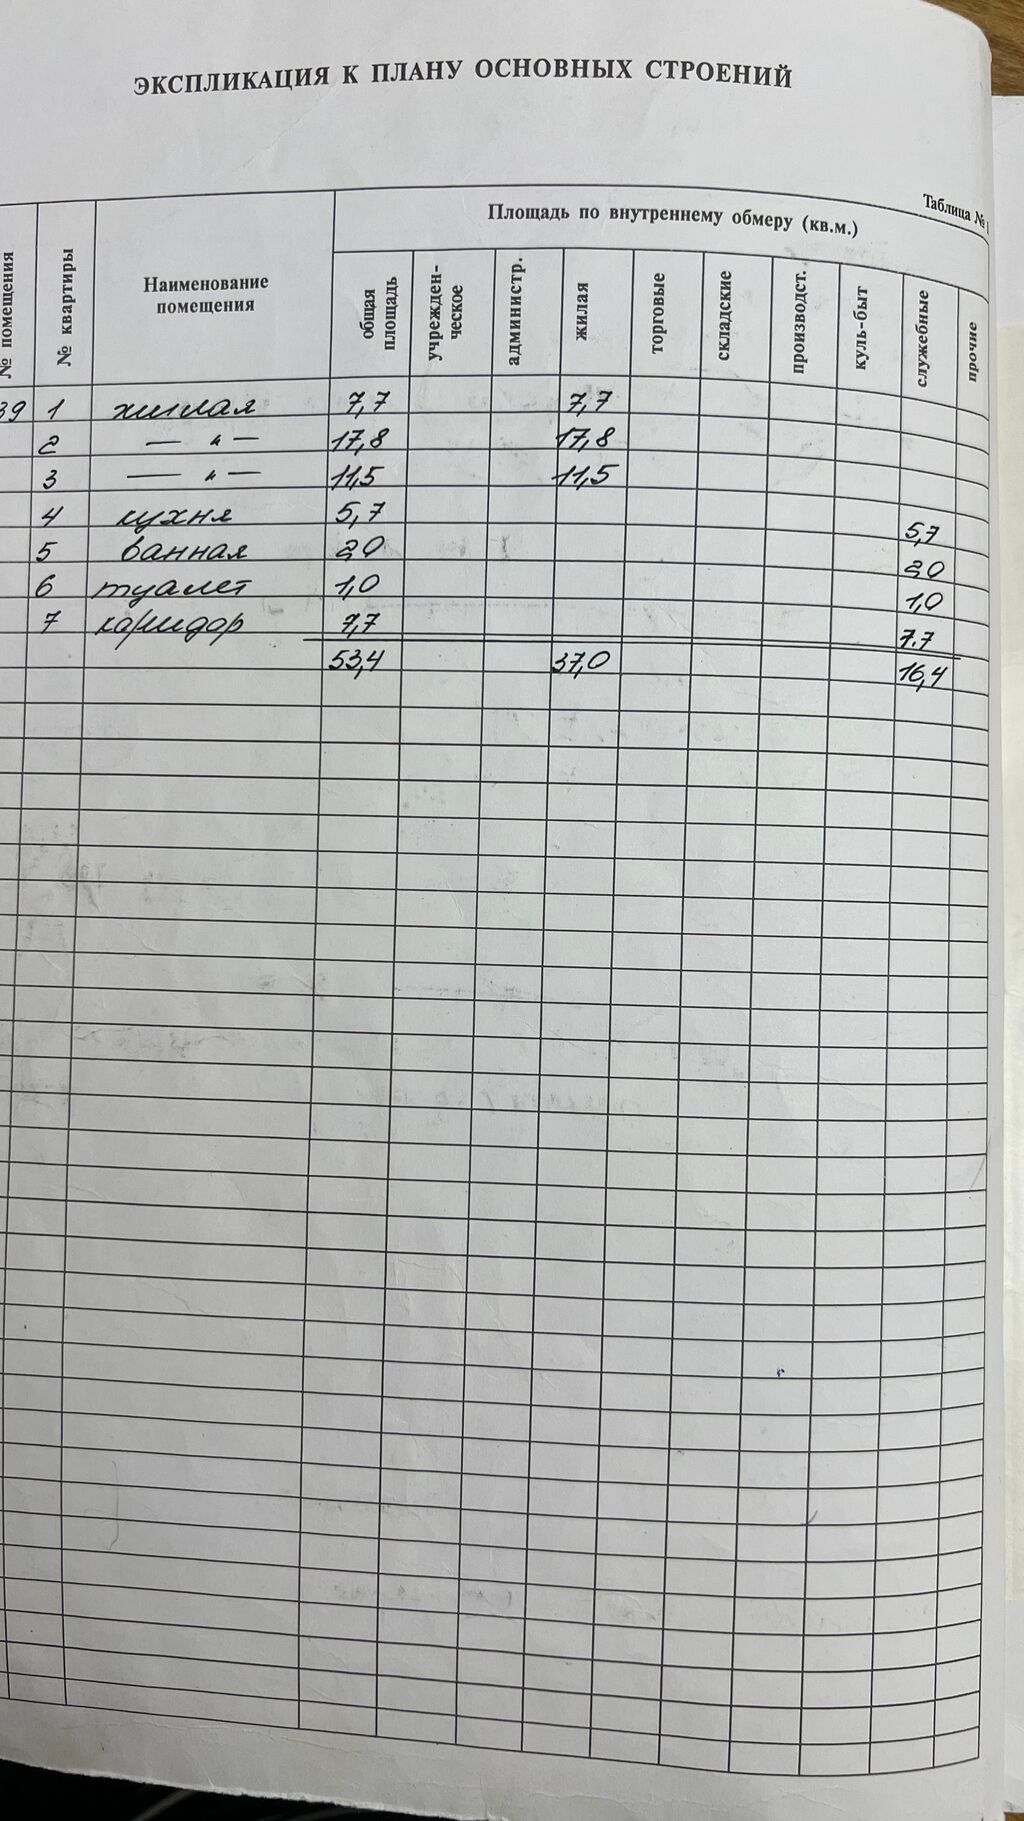 ЭКСПЛИКАЦИЯ К ПЛАНУ ОСНОВНЫХ СТРОЕНИЙ
Таблица № 1
№ помещения
№ квартиры
Наименование помещения
Площадь по внутреннему обмеру (кв.м.)
общая площадь
учрежден-ческое
администр.
жилая
торговые
складские
производст.
куль-быт
служебные
прочие
39 1 жилая 7,7 7,7
2 — " — 17,8 17,8
3 — " — 11,5 11,5
4 кухня 5,7 5,7
5 ванная 2,0 2,0
6 туалет 1,0 1,0
7 коридор 7,7 7.7
53,4 37,0 16,4